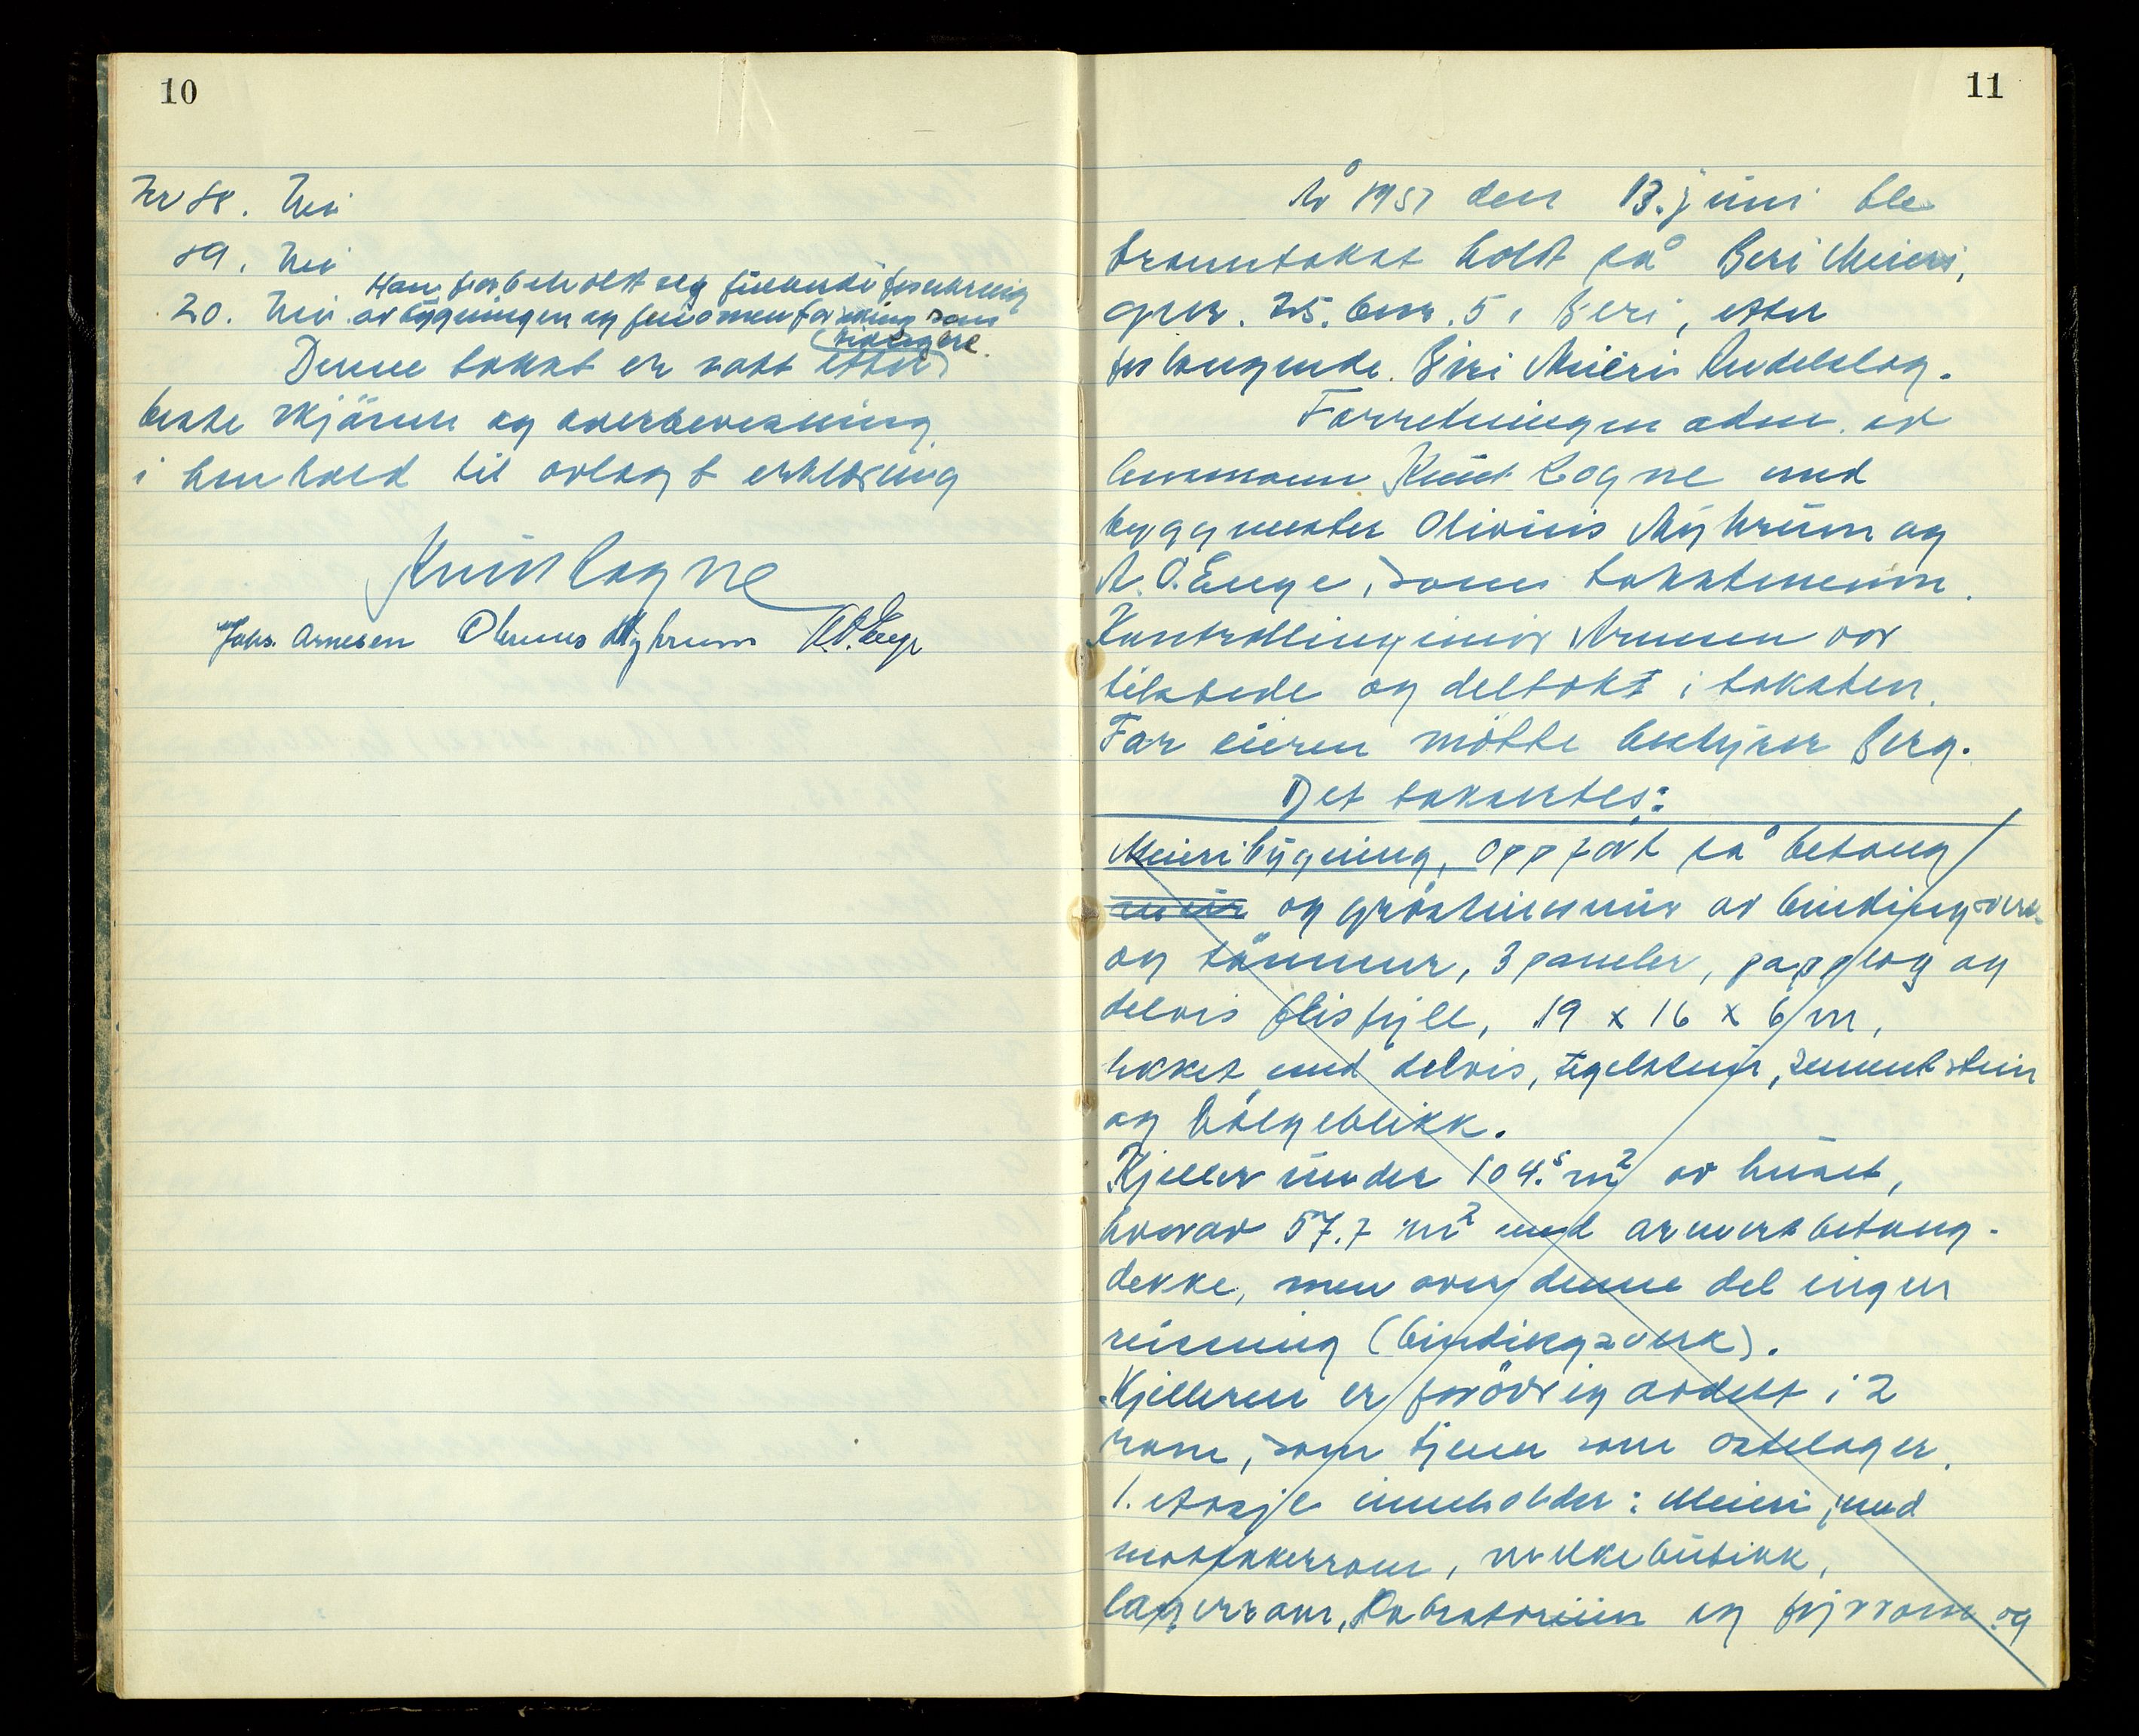 10
Nr 18. Nei
19. Nei
20. Nei
Han forbeholdt seg
av bygningen og som
tidligere.
Denne takst er satt etter
beste skjönn og overbevisning
i henhold til avlagt erklæring
Knut Logne
Johs. Arnesen Olivius Myhrum A.O. Enge
11
År 1957 den 13. juni ble
branntakst holdt på Biri Meieri,
gnr. 25. bnr. 5 i Biri, etter
forlangende. Biri Meieri Andelslag.
Forretningen adm. av
lensmann Knut Logne med
byggmester Olivius Myhrum og
A. O. Enge, som takstmenn.
Kontrollingeniör Arnesen var
tilstede og deltokt i taksten.
For eieren mötte bestyrer Berg.
Det taksertes:
Meieribygning, oppfört på betong
mur og gråsteinsmur av bindingsverk
og tömmer, 3 paneler, papplag og
delvis flisfyll, 19 x 16 x 6 m,
tekket med delvis, tegelstein, sementstein
og bölgeblikk.
Kjeller under 104.5 m2 av huset,
hvorav 57.7 m2 med armert betong-
dekke, men over denne del ingen
reisning (bindingsverk).
Kjelleren er forövrig avdelt i 2
rom, som tjener som ostelager.
1. etasje inneholder: Meieri, med
mottakerrom, melkebutikk,
lagerrom, Labratorium og fyrrom og